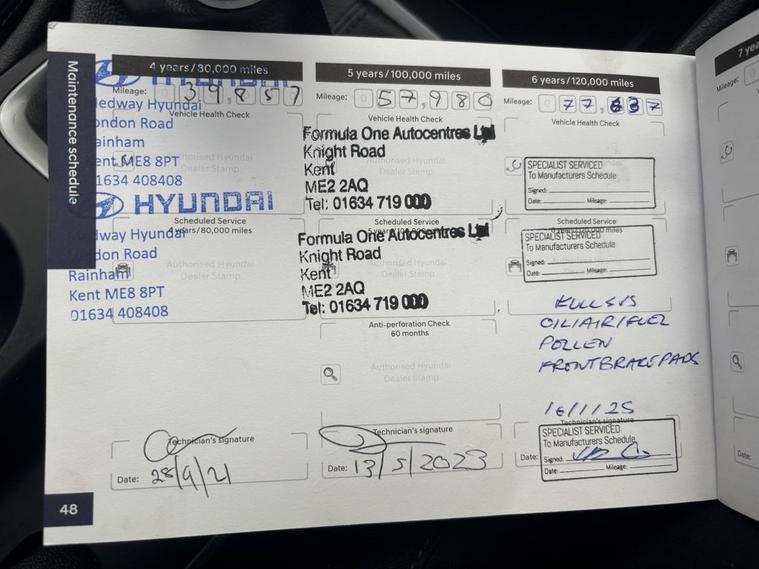 Maintenance schedule
4 years/80,000 miles
HYUNDAI
Mileage: 0 39,857
Medway Hyundai
Vehicle Health Check
London Road
Rainham
Kent ME8 8PT
Authorised Hyundai
Dealer Stamp
01634 408408
HYUNDAI
Scheduled Service
4 years/80,000 miles
Medway Hyundai
London Road
Authorised Hyundai
Dealer Stamp
Rainham
Kent ME8 8PT
01634 408408
Technician's signature
Date: 28/9/21
48
5 years/100,000 miles
Mileage: 0 57,980
Vehicle Health Check
Formula One Autocentres Ltd
Knight Road
Authorised Hyundai
Kent
Dealer Stamp
ME2 2AQ
Tel: 01634 719 000
Scheduled Service
Formula One Autocentres Ltd
Knight Road
Authorised Hyundai
Kent
Dealer Stamp
ME2 2AQ
Tel: 01634 719 000
Anti-perforation Check
60 months
Authorised Hyundai
Dealer Stamp
Technician's signature
Date: 13/5/2023
6 years/120,000 miles
Mileage: 0 77,
Vehicle Health Check
SPECIALIST SERVICED
To Manufacturers Schedule
Signed:
Date: Mileage:
Scheduled Service
SPECIALIST SERVICED
To Manufacturers Schedule
Signed:
Date: Mileage:
FULL SVS
OIL/AIR/FUEL
POLLEN
FRONT BRAKE PADS
16/1/25
Technician's signature
SPECIALIST SERVICED
To Manufacturers Schedule
Date: Signed:
Date: Mileage:
7 ye
Mileage:
Date: